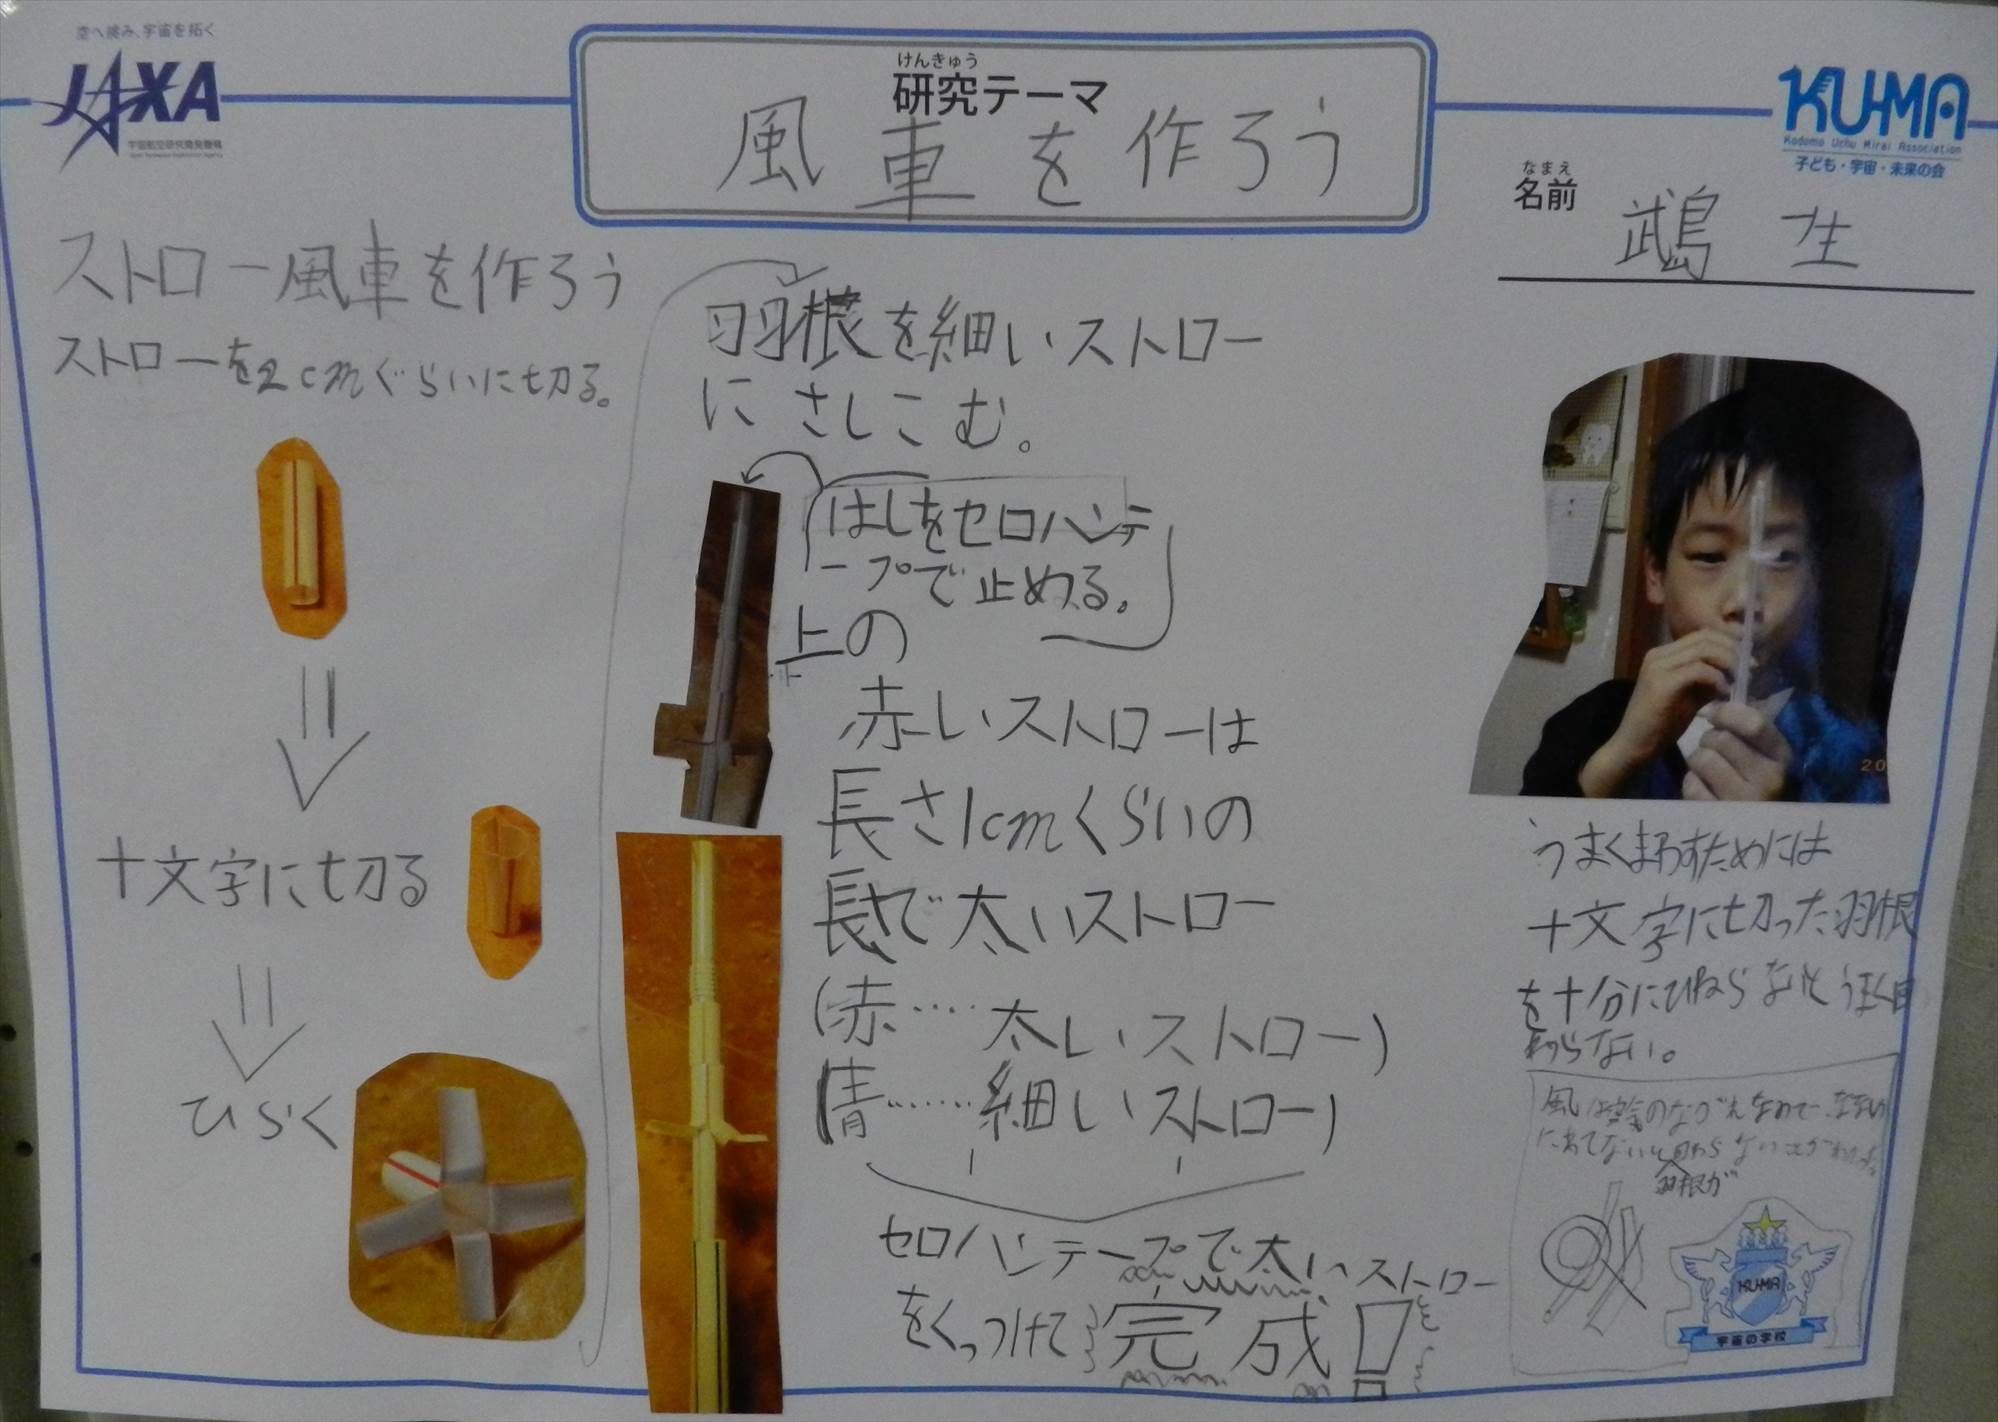 空へ挑み、宇宙を拓く
JAXA
宇宙航空研究開発機構
Japan Aerospace Exploration Agency
けんきゅう
研究テーマ
風車を作ろう
KU-MA
Kodomo Uchu Mirai Association
子ども・宇宙・未来の会
なまえ
名前
生
ストロー風車を作ろう
ストローを2cmぐらいに切る。
十文字に切る
ひらく
羽根を細いストロー
にさしこむ。
はしをセロハンテ
ープで止める。
上の
赤いストローは
長さ1cmくらいの
長さで太いストロー
(赤‥‥太いストロー)
(青‥‥‥細いストロー)
セロハンテープで太いストロー
をくっつけて完成!
20
うまくまわすためには
十文字に切った羽根
を十分にひねらないとうまく回
わらない。
風は空気のながれなので、ななめ
にあてないと回わらないことがわかった。
羽根が
KU-MA
宇宙の学校